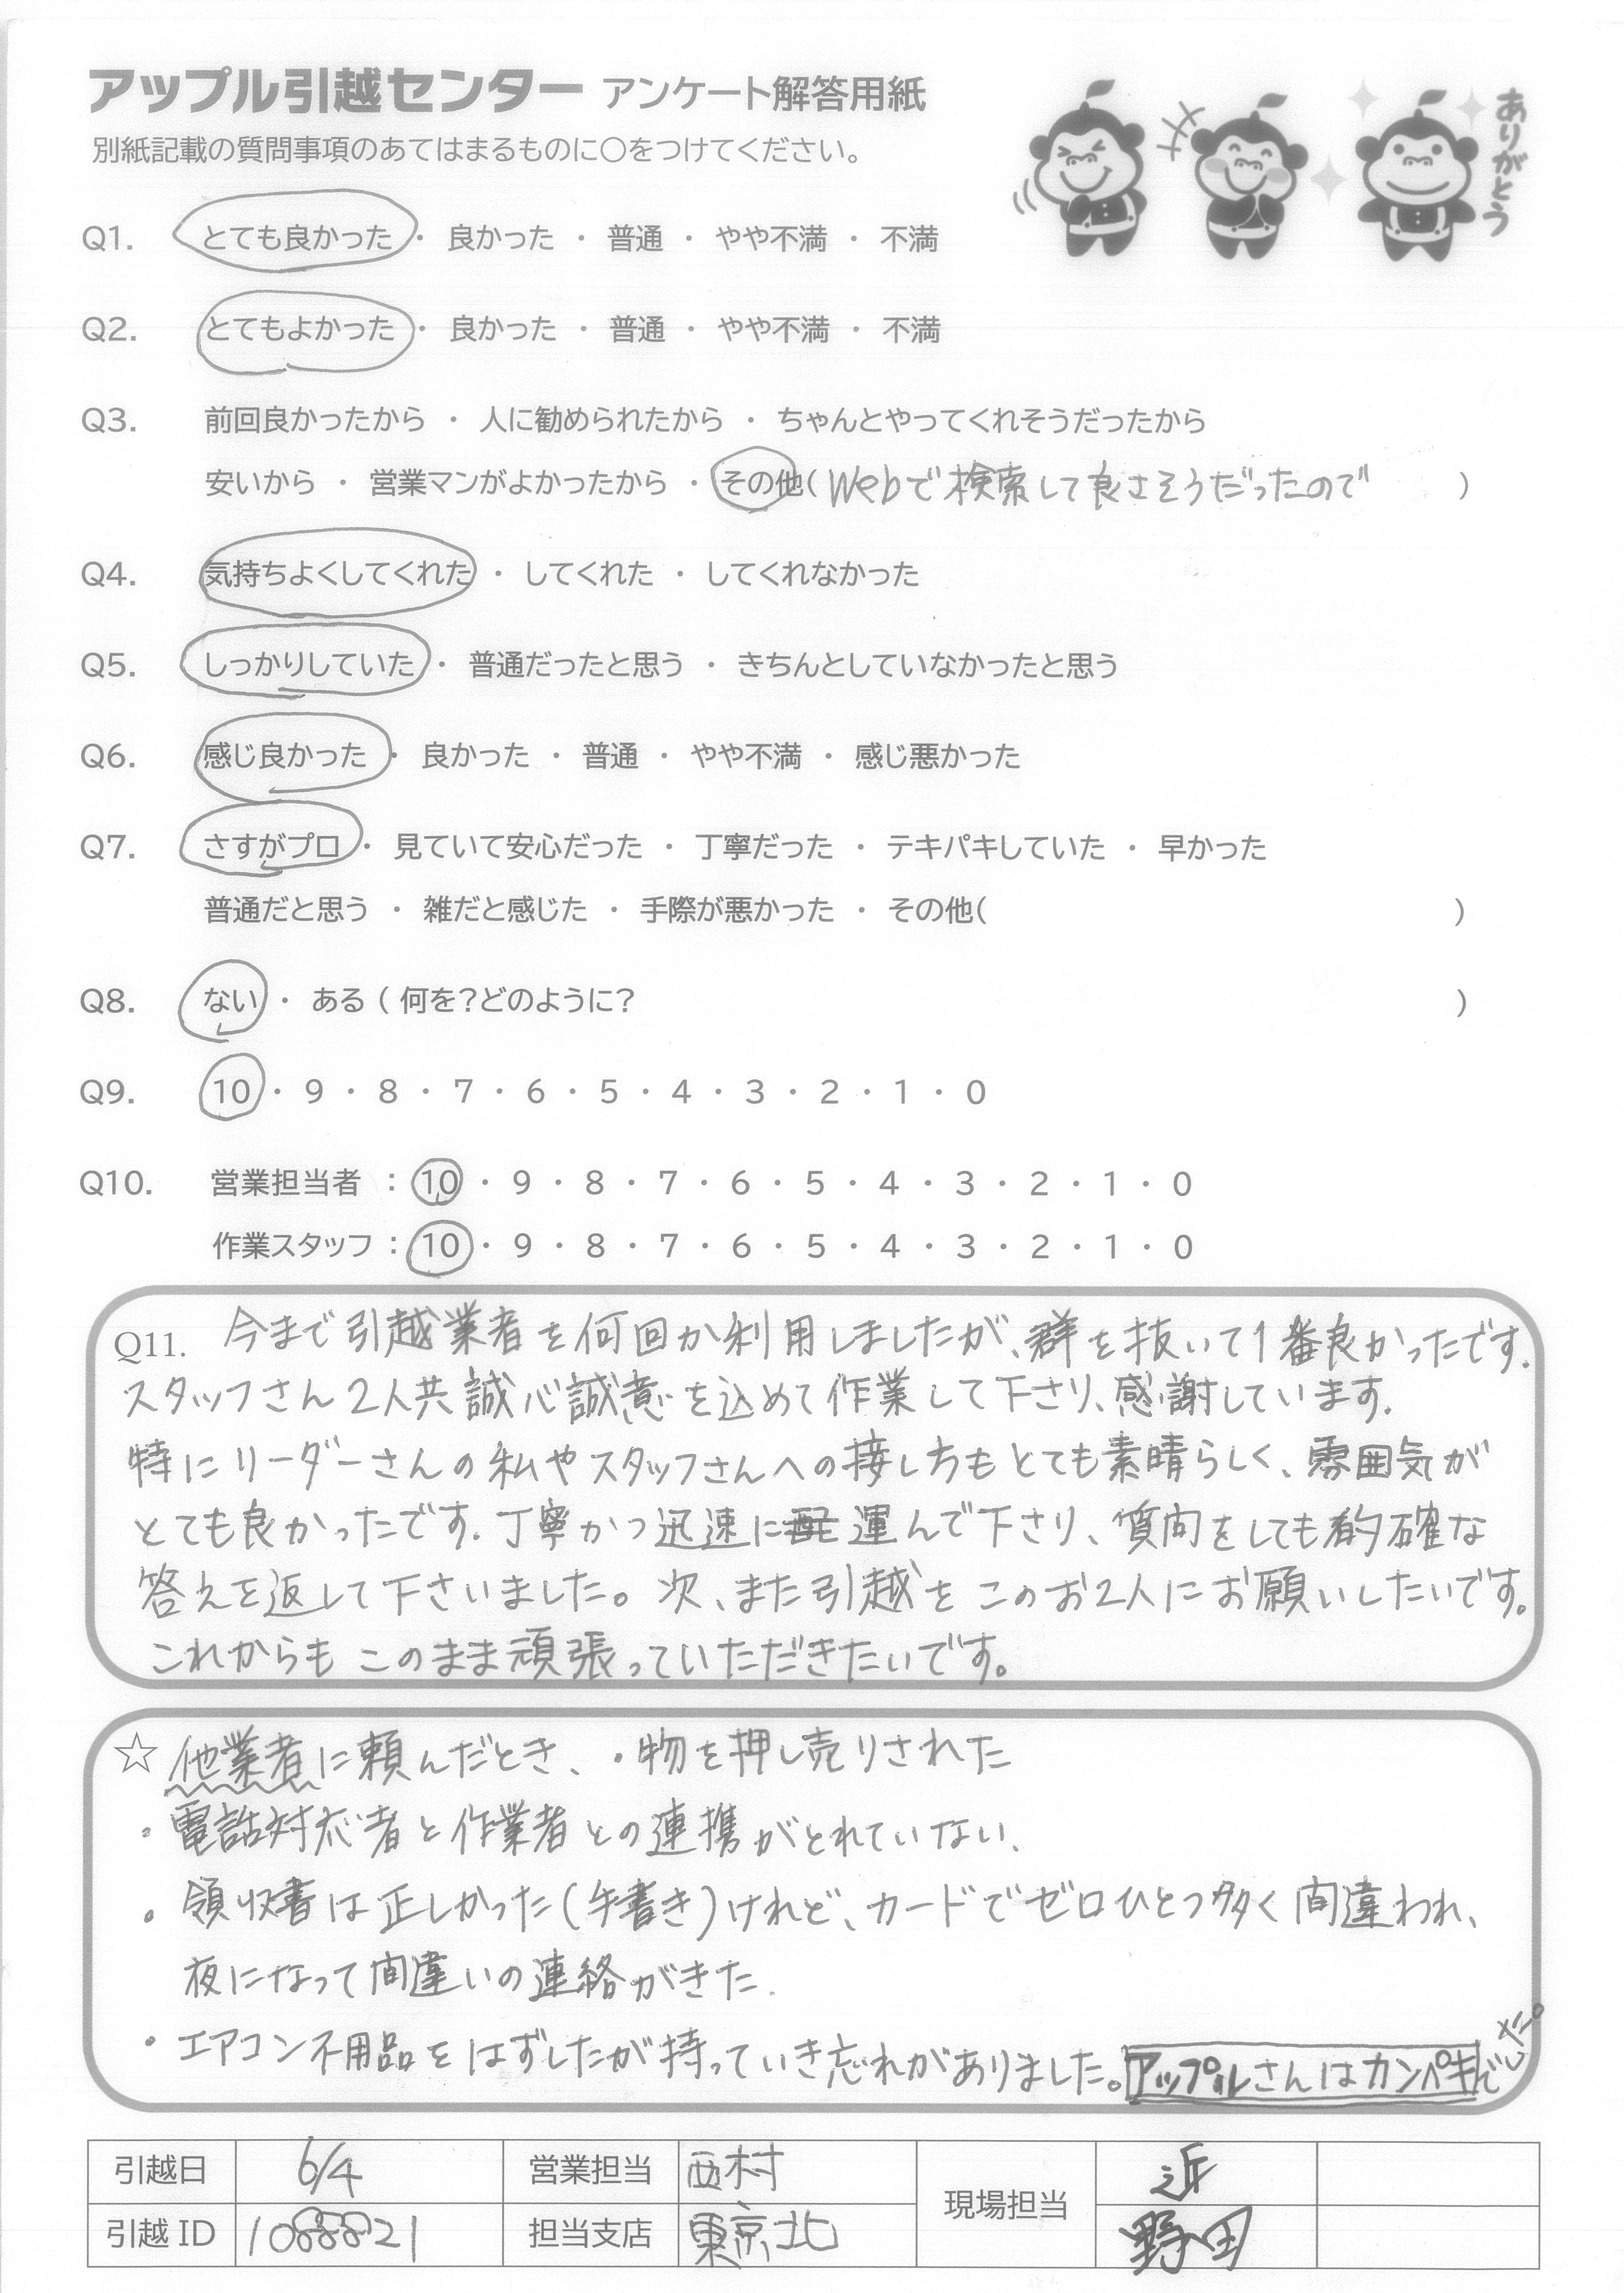 アップル引越センター アンケート解答用紙
ありがとう
別紙記載の質問事項のあてはまるものに○をつけてください。
Q1. とても良かった ・ 良かった ・ 普通 ・ やや不満 ・ 不満
Q2. とてもよかった ・ 良かった ・ 普通 ・ やや不満 ・ 不満
Q3. 前回良かったから ・ 人に勧められたから ・ ちゃんとやってくれそうだったから
安いから ・ 営業マンがよかったから ・ その他( Webで検索して良さそうだったので )
Q4. 気持ちよくしてくれた ・ してくれた ・ してくれなかった
Q5. しっかりしていた ・ 普通だったと思う ・ きちんとしていなかったと思う
Q6. 感じ良かった ・ 良かった ・ 普通 ・ やや不満 ・ 感じ悪かった
Q7. さすがプロ ・ 見ていて安心だった ・ 丁寧だった ・ テキパキしていた ・ 早かった
普通だと思う ・ 雑だと感じた ・ 手際が悪かった ・ その他( )
Q8. ない ・ ある ( 何を?どのように? )
Q9. 10 ・ 9 ・ 8 ・ 7 ・ 6 ・ 5 ・ 4 ・ 3 ・ 2 ・ 1 ・ 0
Q10. 営業担当者 : 10 ・ 9 ・ 8 ・ 7 ・ 6 ・ 5 ・ 4 ・ 3 ・ 2 ・ 1 ・ 0
作業スタッフ : 10 ・ 9 ・ 8 ・ 7 ・ 6 ・ 5 ・ 4 ・ 3 ・ 2 ・ 1 ・ 0
Q11. 今まで引越業者を何回か利用しましたが、群を抜いて1番良かったです.
スタッフさん2人共誠心誠意を込めて作業して下さり、感謝しています.
特にリーダーさんの私やスタッフさんへの接し方もとても素晴らしく、雰囲気が
とても良かったです. 丁寧かつ迅速に運んで下さり、質問をしても的確な
答えを返して下さいました。次、また引越をこのお2人にお願いしたいです。
これからもこのまま頑張っていただきたいです。
☆ 他業者に頼んだとき、・物を押し売りされた
・電話対応者と作業者との連携がとれていない.
・領収書は正しかった(手書き)けれど、カードでゼロひとつ多く間違われ、
夜になって間違いの連絡がきた.
・エアコン不用品をはずしたが持っていき忘れがありました。アップルさんはカンペキでした。
引越日 6/4 営業担当 西村 現場担当 近
引越 ID 10888821 担当支店 東京北 野田